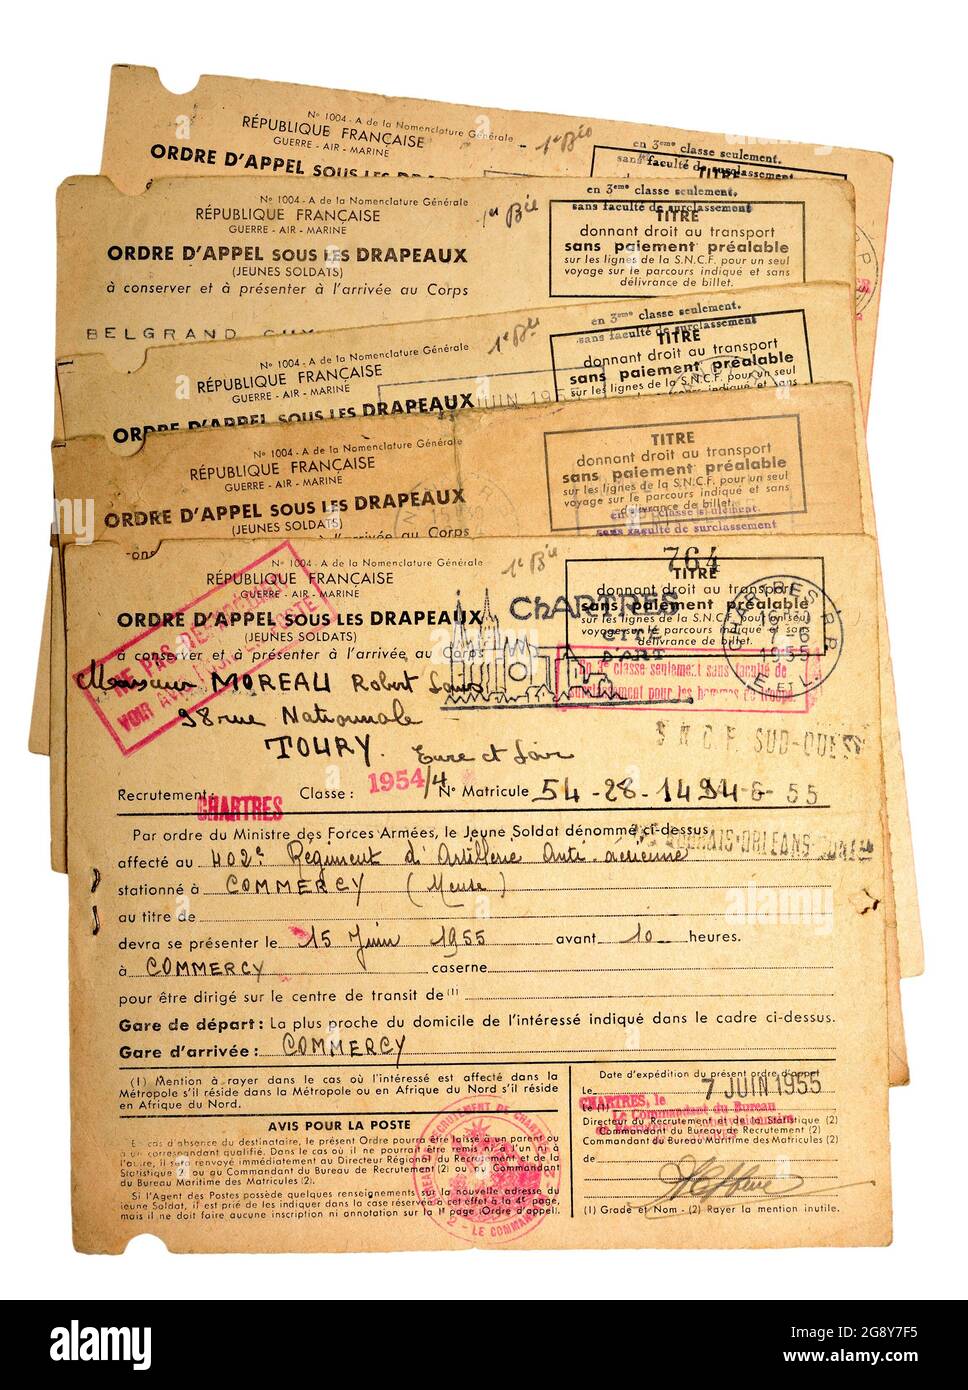 Nº 1004 - A de la Nomenclature Générale
RÉPUBLIQUE FRANÇAISE
GUERRE - AIR - MARINE
ORDRE D'APPEL SOUS LES DRAPEAUX
en 3eme classe seulement.
sans faculté de surclassement
TITRE
Nº 1004 - A de la Nomenclature Générale
RÉPUBLIQUE FRANÇAISE
GUERRE - AIR - MARINE
ORDRE D'APPEL SOUS LES DRAPEAUX
(JEUNES SOLDATS)
à conserver et à présenter à l'arrivée au Corps
BELGRAND GUY
en 3eme classe seulement.
sans faculté de surclassement
TITRE
donnant droit au transport
sans paiement préalable
sur les lignes de la S.N.C.F. pour un seul
voyage sur le parcours indiqué et sans
délivrance de billet.
Nº 1004 - A de la Nomenclature Générale
RÉPUBLIQUE FRANÇAISE
GUERRE - AIR - MARINE
ORDRE D'APPEL SOUS LES DRAPEAUX
JUIN 195
en 3eme classe seulement.
sans faculté de surclassement
TITRE
donnant droit au transport
sans paiement préalable
sur les lignes de la S.N.C.F. pour un seul
voyage sur le parcours indiqué et sans
Nº 1004 - A de la Nomenclature Générale
RÉPUBLIQUE FRANÇAISE
GUERRE - AIR - MARINE
ORDRE D'APPEL SOUS LES DRAPEAUX
(JEUNES SOLDATS)
à l'arrivée au Corps
TITRE
donnant droit au transport
sans paiement préalable
sur les lignes de la S.N.C.F. pour un seul
voyage sur le parcours indiqué et sans
délivrance de billet.
en 3eme classe seulement.
sans faculté de surclassement
Nº 1004 - A de la Nomenclature Générale
RÉPUBLIQUE FRANÇAISE
GUERRE - AIR - MARINE
ORDRE D'APPEL SOUS LES DRAPEAUX
(JEUNES SOLDATS)
à conserver et à présenter à l'arrivée au Corps
764
TITRE
donnant droit au transport
sans paiement préalable
sur les lignes de la S.N.C.F. pour un seul
voyage sur le parcours indiqué et sans
délivrance de billet.
CHARTRES
CITÉ
D'ART
CHARTRES R.P.
1955
E.ET L.
En 3e classe seulement sans faculté de
surclassement pour les hommes de troupe.
Monsieur MOREAU Robert Louis
98 rue Nationale
TOURY. Eure et Loir
S N C F SUD-OUEST
Recrutement: CHARTRES Classe: 1954/4 Nº Matricule 54-28-1494
-6-55
Par ordre du Ministre des Forces Armées, le Jeune Soldat dénommé ci-dessus
affecté au 402e Régiment d'Artillerie Anti-aérienne
stationné à COMMERCY (Meuse)
au titre de
devra se présenter le 15 Juin 1955 avant 10 heures.
à COMMERCY caserne
pour être dirigé sur le centre de transit de (1)
Gare de départ: La plus proche du domicile de l'intéressé indiqué dans le cadre ci-dessus.
Gare d'arrivée: COMMERCY
(1) Mention à rayer dans le cas où l'intéressé est affecté dans la
Métropole s'il réside dans la Métropole ou en Afrique du Nord s'il réside
en Afrique du Nord.
AVIS POUR LA POSTE
En cas d'absence du destinataire, le présent Ordre pourra être laissé à un parent ou
à un correspondant qualifié. Dans le cas où il ne pourrait être remis ni à l'un ni à
l'autre, il sera renvoyé immédiatement au Directeur Régional du Recrutement et de la
Statistique (2) ou au Commandant du Bureau de Recrutement (2) ou au Commandant
du Bureau Maritime des Matricules (2).
Si l'Agent des Postes possède quelques renseignements sur la nouvelle adresse du
jeune Soldat, il est prié de les indiquer dans la case réservée à cet effet à la 4e page,
mais il ne doit faire aucune inscription ni annotation sur la 1e page (Ordre d'appel).
Date d'expédition du présent ordre d'appel
Le 7 JUIN 1955
CHARTRES, le
Le Commandant du Bureau
Le (1)
Directeur du Recrutement et de la Statistique (2)
Commandant du Bureau de Recrutement (2)
Commandant du Bureau Maritime des Matricules (2)
de
(1) Grade et Nom - (2) Rayer la mention inutile.
alamy
Image ID: 2G8Y7F5
www.alamy.com